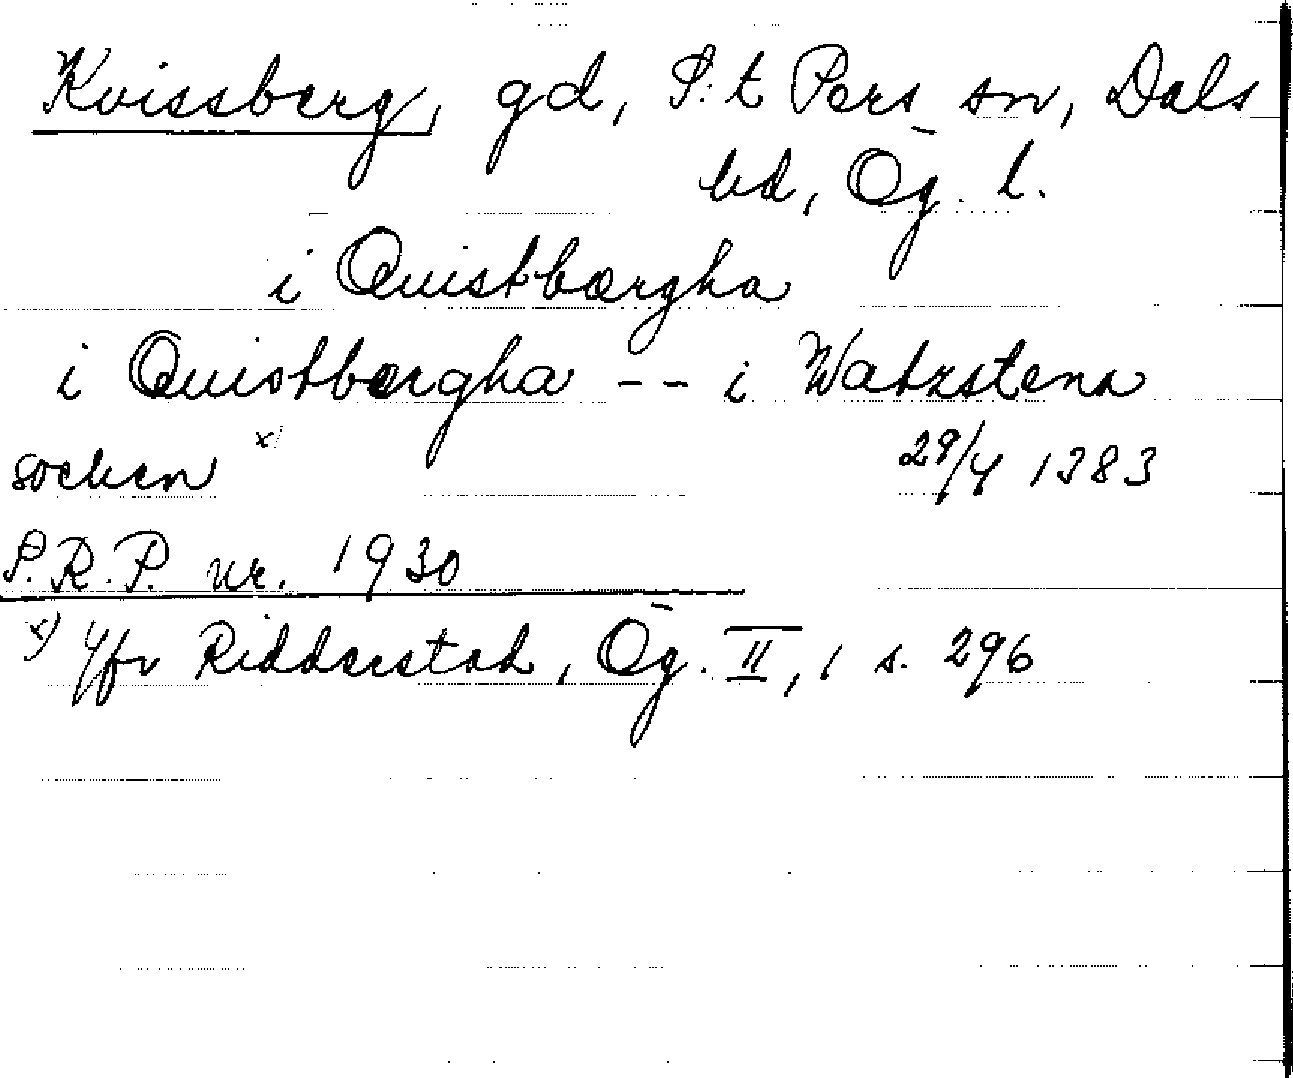 Kvissberg, gd, S:t Pers sn, Dals
hd, Ög. l.
i Quistbærgha
i Quistbærgha -- i Watzstena
socken x)
29/4 1383
S.R.P. nr. 1930
x) Jfr Ridderstad, Ög. II, 1 s. 296